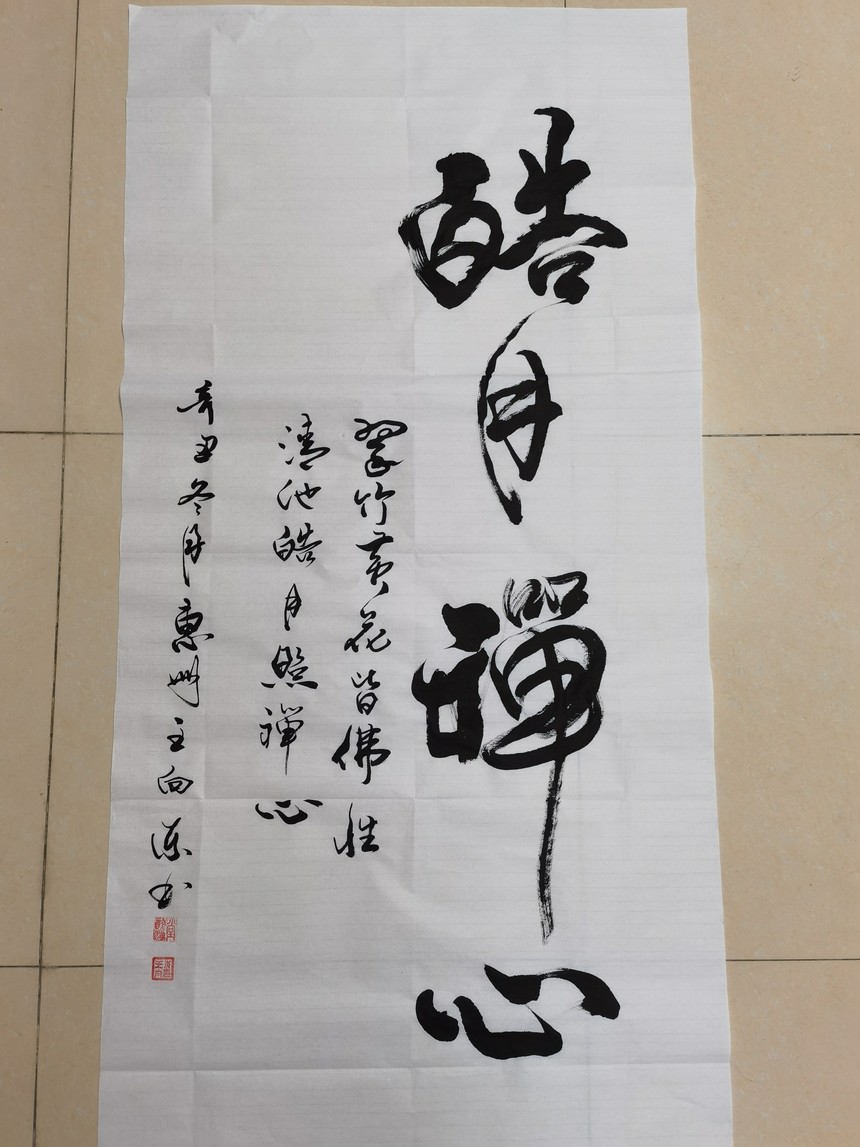 皓月禪心
翠竹黄花皆佛性
清池皓月照禪心
辛丑冬月惠州王向陽书